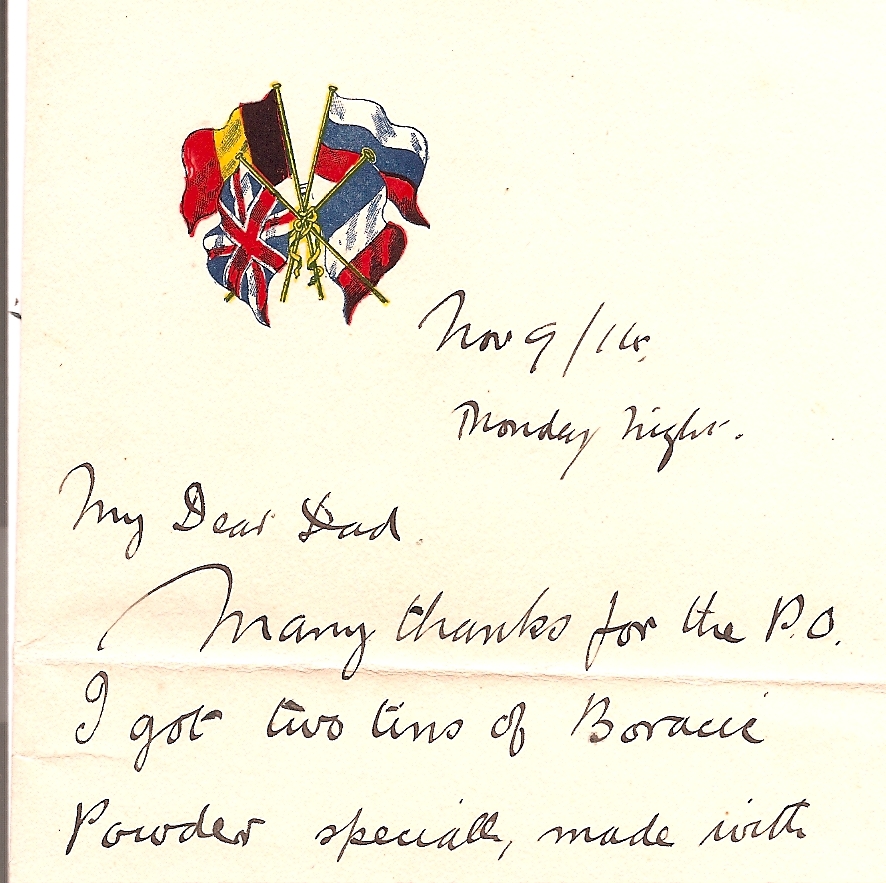 Nov 9/14.
Monday night.
My Dear Dad.
Many thanks for the P.O.
I got two tins of Boracic
Powder specially made with